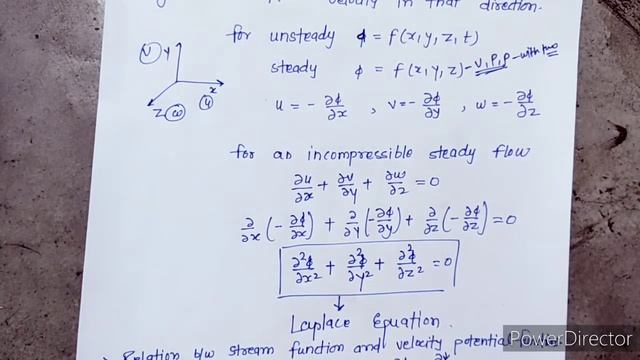 velocity in that direction.
for unsteady ϕ = f(x,y,z,t)
steady ϕ = f(x,y,z) - V, P, ρ - with time
V Y
x
u
Z w
u = - ∂ϕ/∂x , v = - ∂ϕ/∂y , w = - ∂ϕ/∂z
for an incompressible steady flow
∂u/∂x + ∂v/∂y + ∂w/∂z = 0
∂/∂x (- ∂ϕ/∂x) + ∂/∂y (- ∂ϕ/∂y) + ∂/∂z (- ∂ϕ/∂z) = 0
∂²ϕ/∂x² + ∂²ϕ/∂y² + ∂²ϕ/∂z² = 0
Laplace Equation.
Relation b/w stream function and velocity potential
PowerDirector